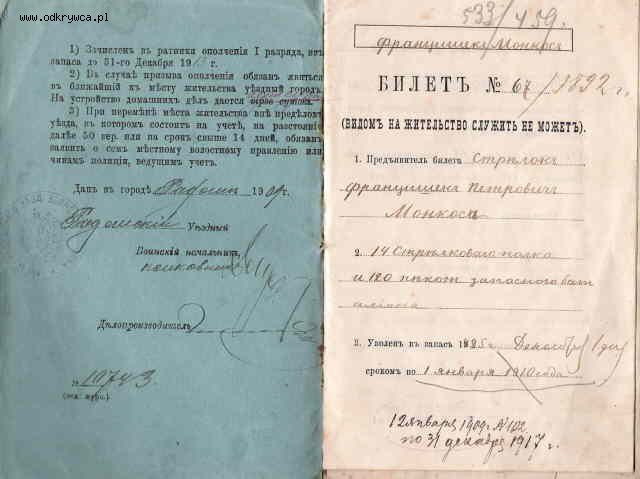 www.odkrywca.pl
1) Зачисленъ въ ратники ополченія I разряда, изъ
запаса до 31-го Декабря 19 г.
2) Въ случаѣ призыва ополченія обязанъ явиться
въ ближайшій къ мѣсту жительства уѣздный городъ.
На устройство домашнихъ дѣлъ даются
3) При перемѣнѣ мѣста жительства внѣ предѣловъ
уѣзда, въ которомъ состоитъ на учетѣ, на разстояніе
далѣе 50 вер. или на срокъ свыше 14 дней, обязанъ
заявить о семъ мѣстному волостному правленію или
чинамъ полиціи, ведущимъ учетъ.
Данъ въ городѣ Радомъ 190 г.
Радомскій Уѣздный
Воинскій начальникъ,
полковникъ
Дѣлопроизводитель
№ 10743
533/459.
Францишекъ Монкосъ
БИЛЕТЪ № 67/1892 г.
(ВИДОМЪ НА ЖИТЕЛЬСТВО СЛУЖИТЬ НЕ МОЖЕТЪ).
1. Предъявитель билета Стрѣлокъ
Францишекъ Петровичъ
Монкосъ
2. 14 Стрѣлковаго полка
и 180 пѣхот. запаснаго бат
аліона
3. Уволенъ въ запасъ 1895 г. Декабря 1 дня
срокомъ по 1 января 1910 года
12 января 1909 г. № 102
по 31 декабря 1917 г.